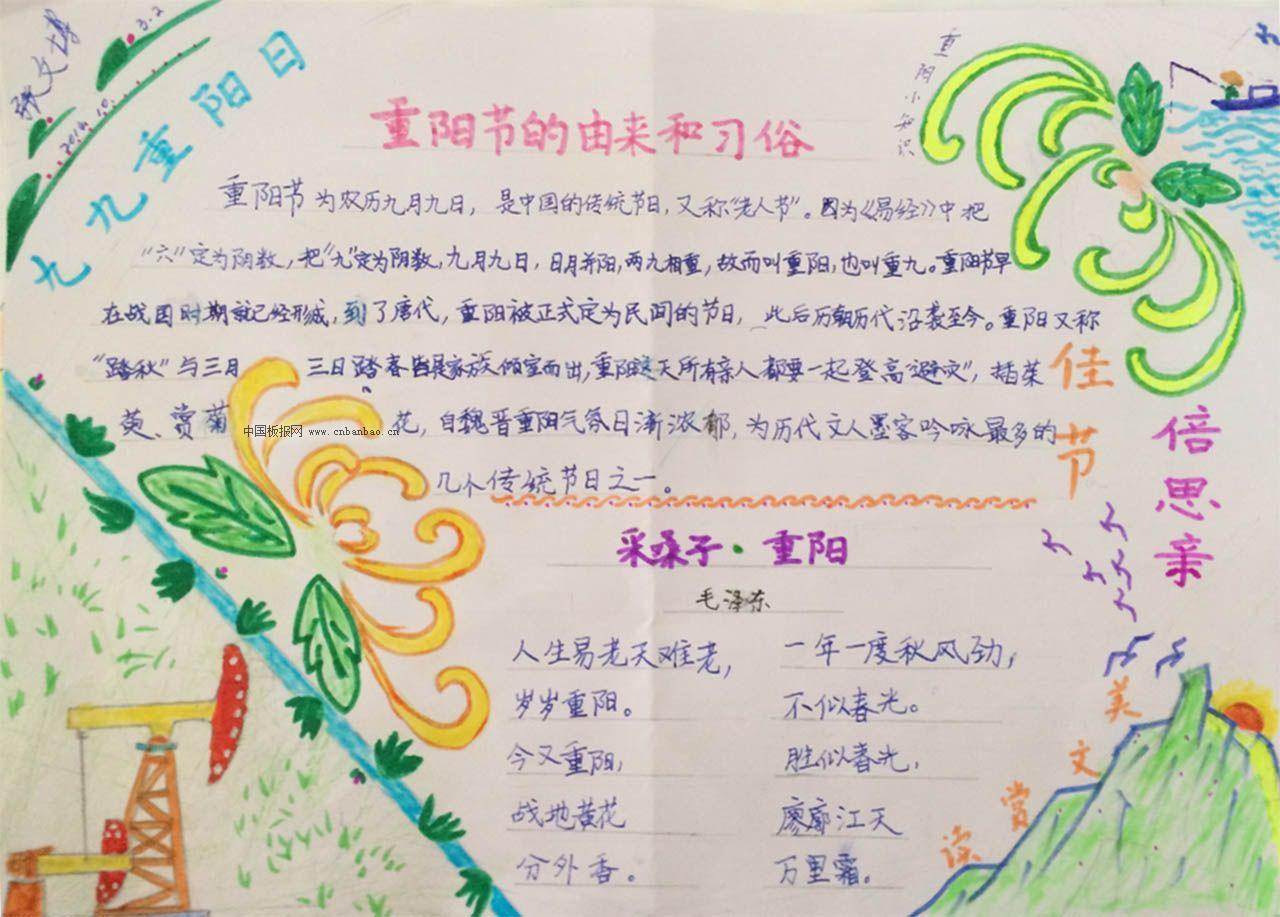 张文博
2014.10.
3.2
九九重阳日
重阳小知识
重阳节的由来和习俗
重阳节为农历九月九日，是中国的传统节日，又称“老人节”。因为《易经》中把
“六”定为阴数，把“九”定为阴数，九月九日，日月并阳，两九相重，故而叫重阳，也叫重九。重阳节早
在战国时期就已经形成，到了唐代，重阳被正式定为民间的节日，此后历朝历代沿袭至今。重阳又称
“踏秋”与三月三日踏春皆是家族倾室而出，重阳这天所有亲人都要一起登高“避灾”，插茱
萸、赏菊花，自魏晋重阳气氛日渐浓郁，为历代文人墨客吟咏最多的
几个传统节日之一。
中国板报网 www.cnbanbao.cn
佳节
倍思亲
采桑子·重阳
毛泽东
人生易老天难老，
岁岁重阳。
今又重阳，
战地黄花
分外香。
一年一度秋风劲，
不似春光。
胜似春光，
廖廓江天
万里霜。
美文赏读